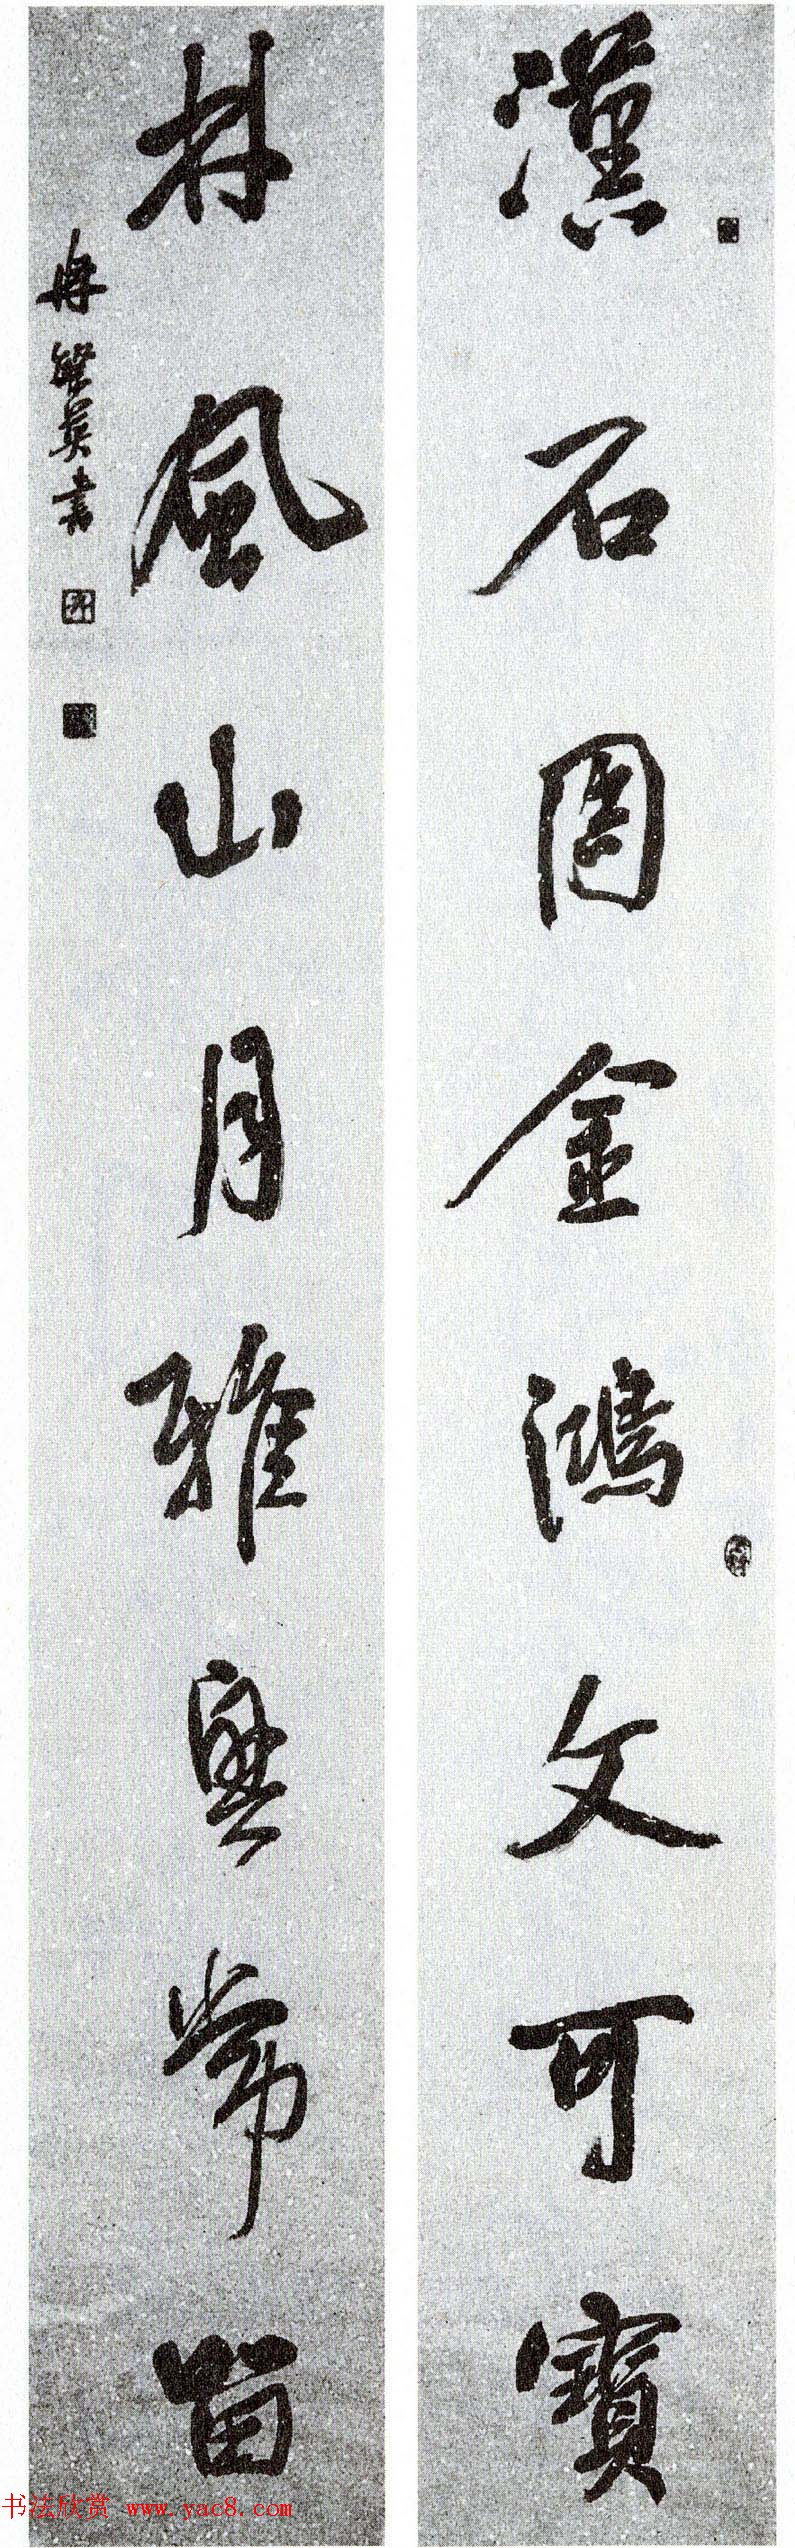 漢石周金鴻文可寶
林風山月雅興常留
冉繁英書
书法欣赏 www.yac8.com